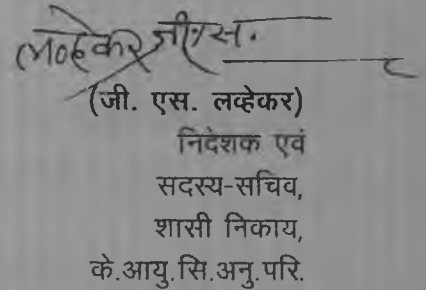 लव्हेकर जी.एस.
(जी. एस. लव्हेकर)
निदेशक एवं
सदस्य-सचिव,
शासी निकाय,
के.आयु.सि.अनु.परि.